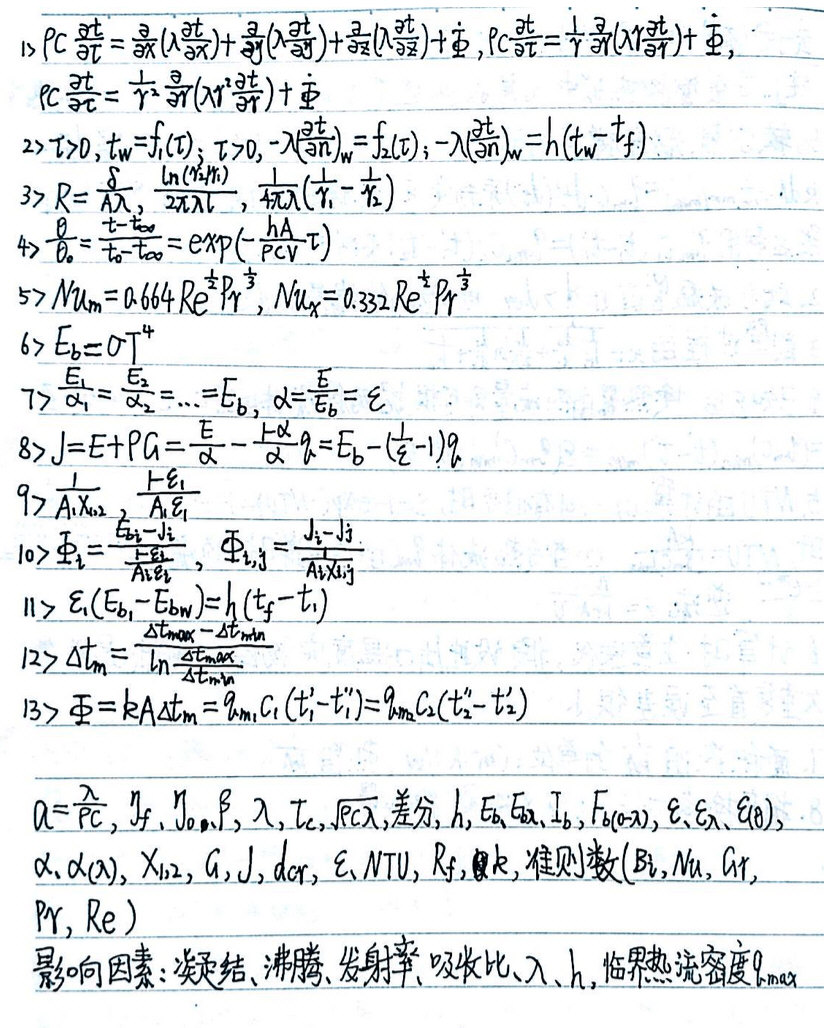 1> ρc ∂t/∂τ = ∂/∂x(λ∂t/∂x) + ∂/∂y(λ∂t/∂y) + ∂/∂z(λ∂t/∂z) + Φ̇, ρc ∂t/∂τ = 1/r ∂/∂r(λr∂t/∂r) + Φ̇,
ρc ∂t/∂τ = 1/r² ∂/∂r(λr²∂t/∂r) + Φ̇
2> τ>0, t_w=f₁(τ); τ>0, -λ(∂t/∂n)_w=f₂(τ); -λ(∂t/∂n)_w=h(t_w-t_f)
3> R=δ/(Aλ), ln(r₂/r₁)/(2πλl), 1/(4πλ)(1/r₁-1/r₂)
4> θ/θ₀=(t-t∞)/(t₀-t∞)=exp(-hA/(ρcV) τ)
5> Nu_m=0.664Re^(1/2)Pr^(1/3), Nu_x=0.332Re^(1/2)Pr^(1/3)
6> E_b=σT⁴
7> E₁/α₁=E₂/α₂=...=E_b, α=E/E_b=ε
8> J=E+ρG=E/α-(1-α)/α q=E_b-(1/ε-1)q
9> 1/(A₁X₁,₂), (1-ε₁)/(A₁ε₁)
10> Φ_i=(E_bi-J_i)/((1-ε_i)/(A_iε_i)), Φ_i,j=(J_i-J_j)/(1/(A_iX_i,j))
11> ε₁(E_b₁-E_bw)=h(t_f-t₁)
12> Δt_m=(Δt_max-Δt_min)/(ln Δt_max/Δt_min)
13> Φ=kAΔt_m=q_m₁c₁(t₁'-t₁'')=q_m₂c₂(t₂''-t₂')
a=λ/ρc, η_f、η₀、β, λ, τ_c, √(ρcλ), 差分, h, E_b、E_bλ、I_b, F_b(0-λ), ε、ε_λ、ε(θ),
α、α(λ), X₁,₂, G, J, d_cr, ε、NTU, R_f, k, 准则数(Bi, Nu, Gr,
Pr, Re)
影响因素:凝结、沸腾、发射率、吸收比、λ、h, 临界热流密度q_max